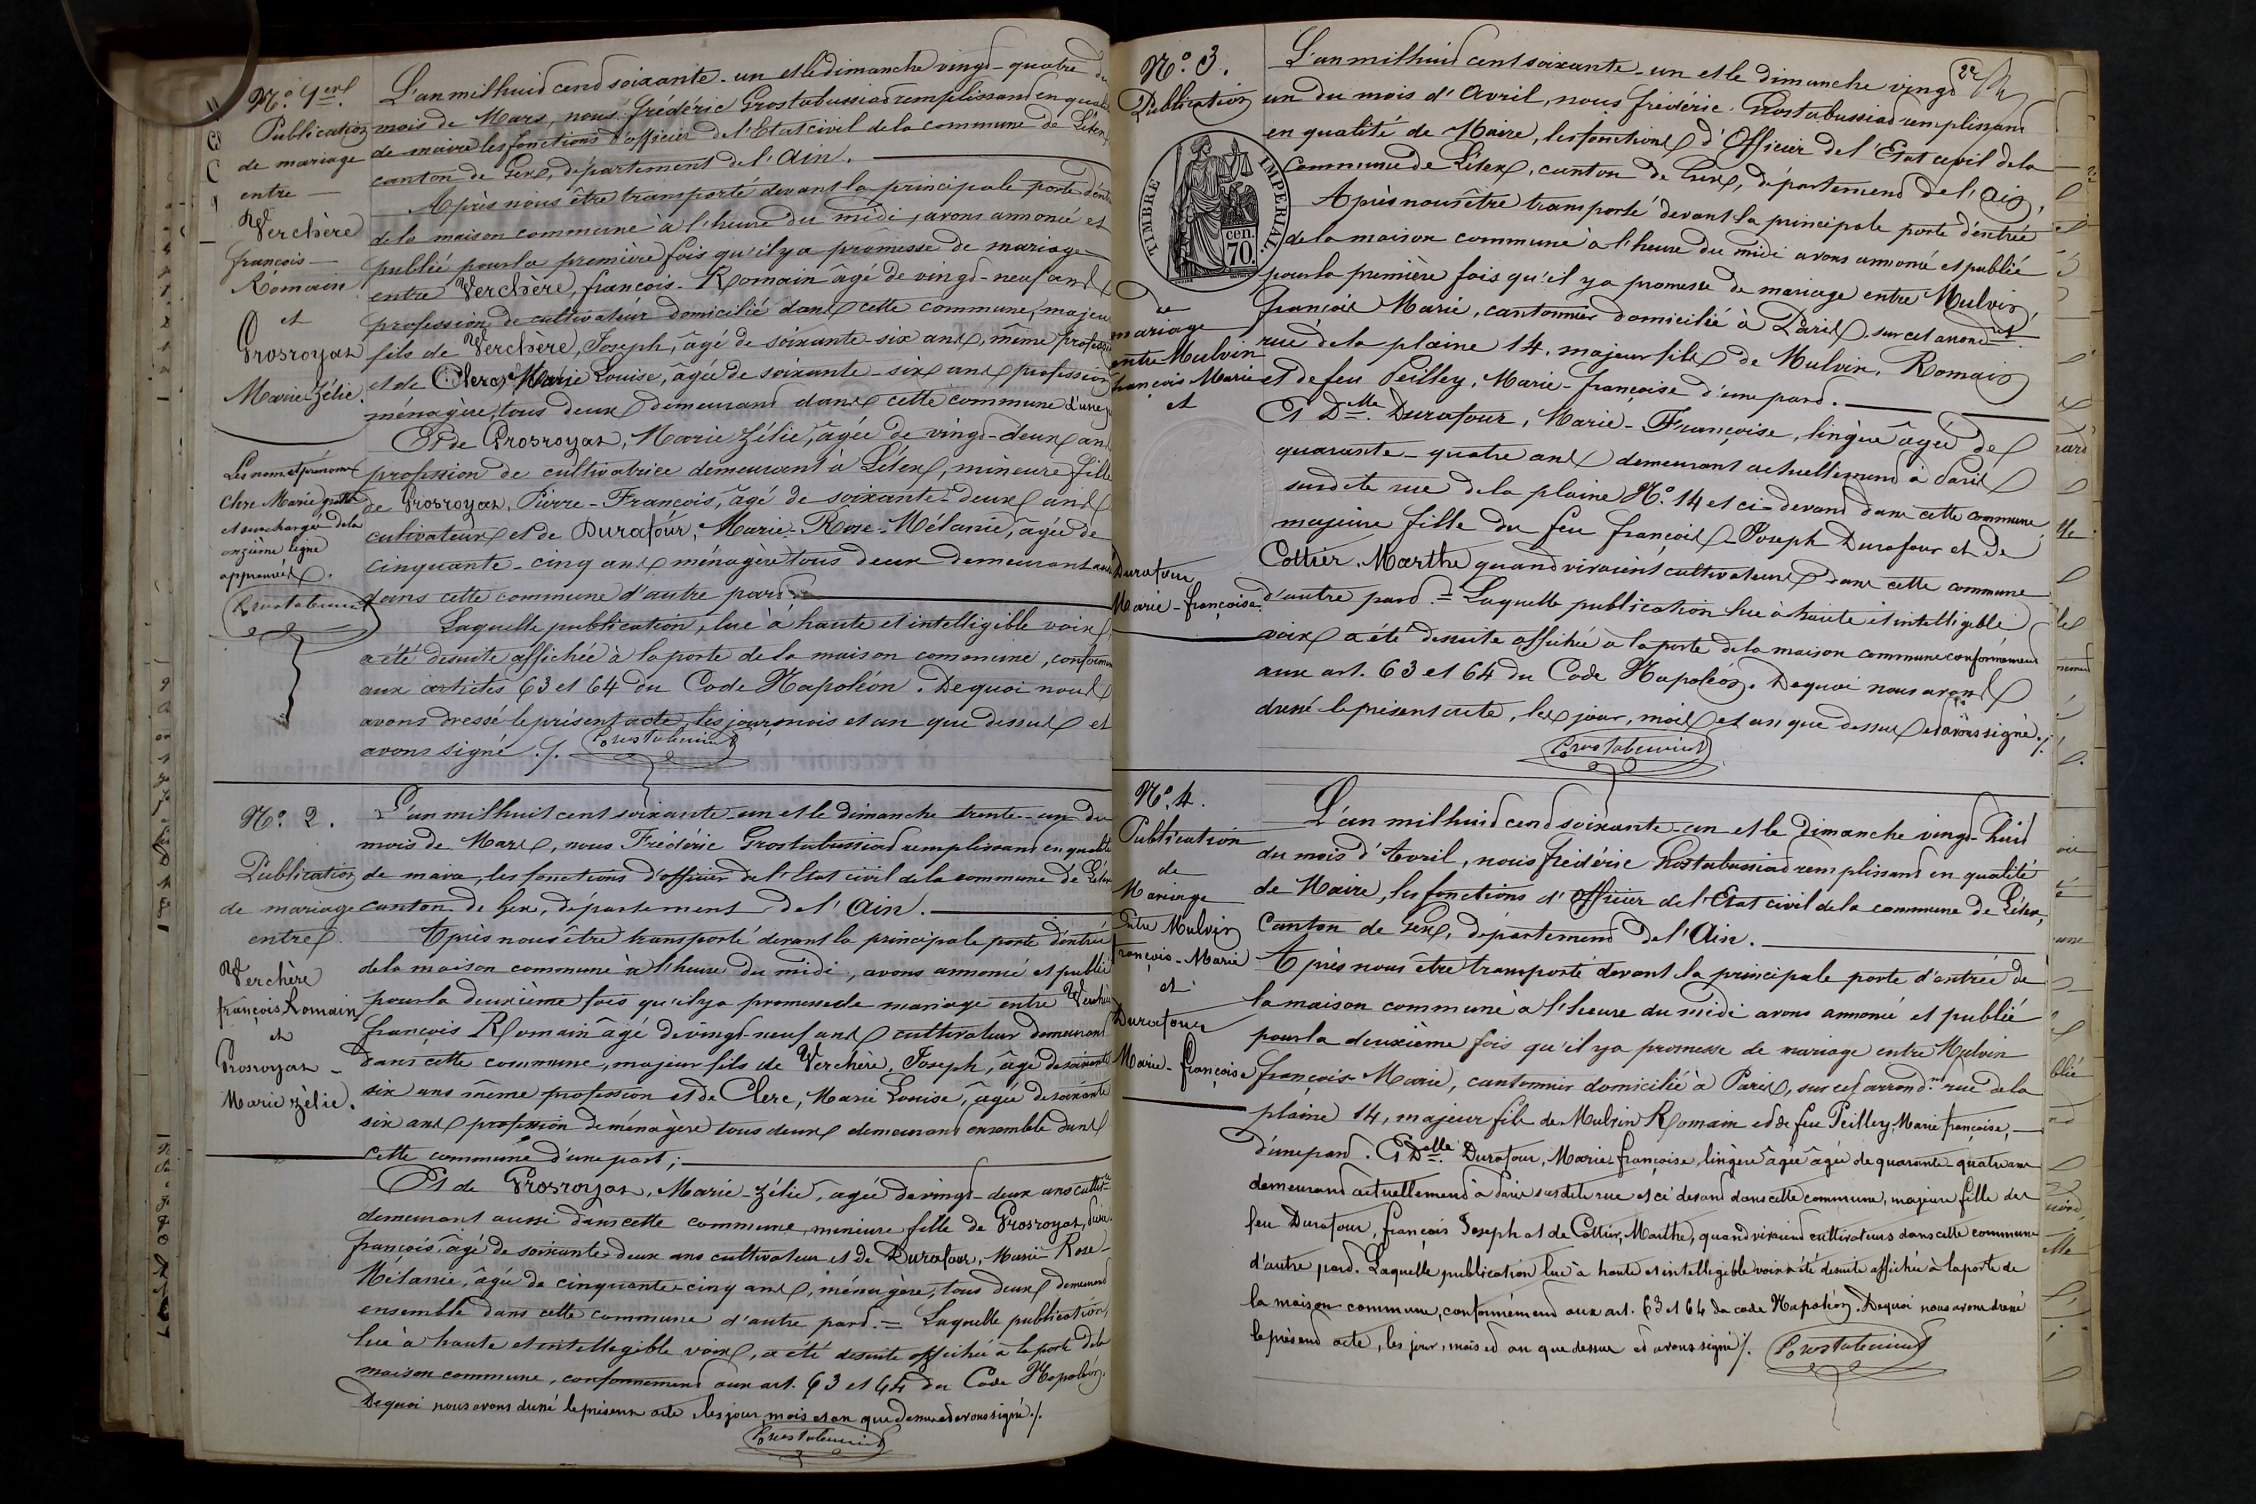 N.o 1er.
Publication
de mariage
entre
Verchère
françois
Romain
et
Grosroyat
Marie Zélie.
Les nom et prénoms
Clerc Marie gratté
et surchargé de la
onzième ligne
approuvés.
L'an mil huit cent soixante-un et le dimanche vingt-quatre du
mois de Mars, nous frédéric Grostabussiat remplissant en qualité
de maire les fonctions d'officier de l'Etat civil de la commune de Lélex,
canton de Gex, département de l'Ain.
Après nous être transporté devant la principale porte d'entrée
de la maison commune à l'heure du midi, avons annoncé et
publié pour la première fois qu'il y a promesse de mariage
entre Verchère, françois-Romain âgé de vingt-neuf ans
profession de cultivateur domicilié dans cette commune, majeur
fils de Verchère, Joseph, âgé de soixante-six ans, même profession
et de Clerc, Marie Louise, âgée de soixante-six ans profession
ménagère, tous deux demeurant dans cette commune d'une p
Et de Grosroyat, Marie Zélie, âgée de vingt-deux ans
profession de cultivatrice demeurant à Lélex, mineure fille
de Grosroyat, Pierre-François, âgé de soixante-deux ans
cultivateur et de Durafour, Marie-Rose-Mélanie, âgée de
cinquante-cinq ans ménagère tous deux demeurant aussi
dans cette commune d'autre part
Laquelle publication, lue à haute et intelligible voix,
a été desuite affichée à la porte de la maison commune, conformém
aux articles 63 et 64 du Code Napoléon. De quoi nous
avons dressé le présent acte, les jour, mois et an que dessus et
avons signé ./. Grostabussiat
N.o 2.
Publication
de mariage
entre
Verchère
françois Romain
et
Grosroyat
Marie zélie.
L'an mil huit cent soixante-un et le dimanche trente-un du
mois de Mars, nous Frédéric Grostabussiat remplissant en qualité
de maire, les fonctions d'officier de l'Etat civil de la commune de Lélex
canton de Gex, département de l'Ain.
Après nous être transporté devant la principale porte d'entrée
de la maison commune à l'heure du midi, avons annoncé et publié
pour la deuxième fois qu'il y a promesse de mariage entre Verchère
françois Romain âgé de vingt-neuf ans cultivateur demeurant
dans cette commune, majeur fils de Verchère, Joseph, âgé de soixante
six ans même profession et de Clerc, Marie Louise, âgée de soixante
six ans profession de ménagère tous deux demeurant ensemble dans
cette commune d'une part;
Et de Grosroyat, Marie-Zélie, âgée de vingt-deux ans cultivce
demeurant aussi dans cette commune, mineure fille de Grosroyat,
françois, âgé de soixante-deux ans cultivateur et de Durafour, Marie-Rose-
Mélanie, âgée de cinquante-cinq ans, ménagère, tous deux demeurant
ensemble dans cette commune d'autre part. = Laquelle publication,
lue à haute et intelligible voix, a été desuite affichée à la porte de la
maison commune, conformément aux art. 63 et 64 du Code Napoléon.
De quoi nous avons dressé le présent acte, les jour, mois et an que dessus et avons signé ./.
Grostabussiat
22
N.o 3.
Publication
TIMBRE IMPERIAL.
cen.
70.
de
mariage
entre Mulvin
françois Marie
et
Durafour
Marie-françoise
L'an mil huit cent soixante-un et le dimanche vingt
un du mois d'Avril, nous frédéric Grostabussiat remplissant
en qualité de Maire, les fonctions d'Officier de l'Etat civil de la
commune de Lélex, canton de Gex, département de l'Ain,
Après nous être transporté devant la principale porte d'entrée
de la maison commune à l'heure du midi avons annoncé et publié
pour la première fois qu'il y a promesse de mariage entre Mulvin,
françois Marie, cantonnier domicilié à Paris, sur cet arrondt
rue de la plaine 14, majeur fils de Mulvin, Romain
et de feu Peilley, Marie-françoise d'une part.
Et Dlle Durafour, Marie-Françoise, lingère âgée de
quarante-quatre ans demeurant actuellement à Paris
susdite rue de la plaine N.o 14 et ci-devant dans cette commune,
majeure fille de feu françois-Joseph Durafour et de
Cottier, Marthe quand vivaient cultivateurs dans cette commune
d'autre part. = Laquelle publication lue à haute et intelligible
voix a été desuite affichée à la porte de la maison commune conformément
aux art. 63 et 64 du Code Napoléon. De quoi nous avons
dressé le présent acte, les jour, mois et an que dessus et avons signé ./.
Grostabussiat
N.o 4.
Publication
de
Mariage
Entre Mulvin
françois-Marie
et
Durafour
Marie-françoise
L'an mil huit cent soixante-un et le dimanche vingt-huit
du mois d'Avril, nous frédéric Grostabussiat remplissant en qualité
de Maire, les fonctions d'Officier de l'Etat civil de la commune de Lélex,
Canton de Gex, département de l'Ain.
Après nous être transporté devant la principale porte d'entrée de
la maison commune à l'heure du midi avons annoncé et publié
pour la deuxième fois qu'il y a promesse de mariage entre Mulvin
françois-Marie, cantonnier domicilié à Paris, sur cet arrond.nt rue de la
plaine 14, majeur fils de Mulvin Romain et de feu Peilley Marie françoise,
d'une part. Et Dlle Durafour, Marie françoise, lingère âgée âgée de quarante-quatre ans
demeurant actuellement à Paris susdite rue et ci devant dans cette commune, majeure fille de
feu Durafour, françois Joseph et de Cottier, Marthe, quand vivaient cultivateurs dans cette commune
d'autre part. Laquelle publication lue à haute et intelligible voix a été desuite affichée à la porte de
la maison commune, conformément aux art. 63 et 64 du code Napoléon. De quoi nous avons dressé
le présent acte, les jour, mois et an que dessus et avons signé ./. Grostabussiat